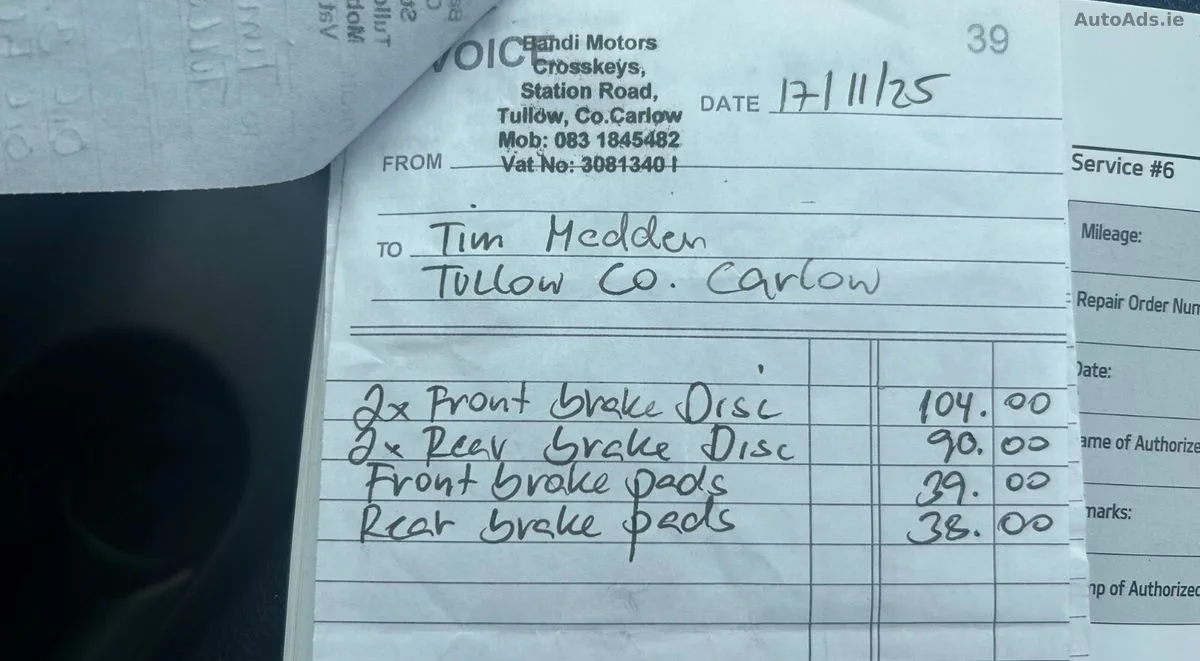 AutoAds.ie
39
VOICE
Bandi Motors
Crosskeys,
Station Road,
Tullow, Co.Carlow
Mob: 083 1845482
Vat No: 3081340 I
DATE 17/11/25
FROM
TO Tim Hedden
Tullow Co. Carlow
2x Front brake Disc 104.00
2x Rear brake Disc 90.00
Front brake pads 39.00
Rear brake pads 38.00
Service #6
Mileage:
Repair Order Num
Date:
ame of Authorize
marks:
mp of Authorized